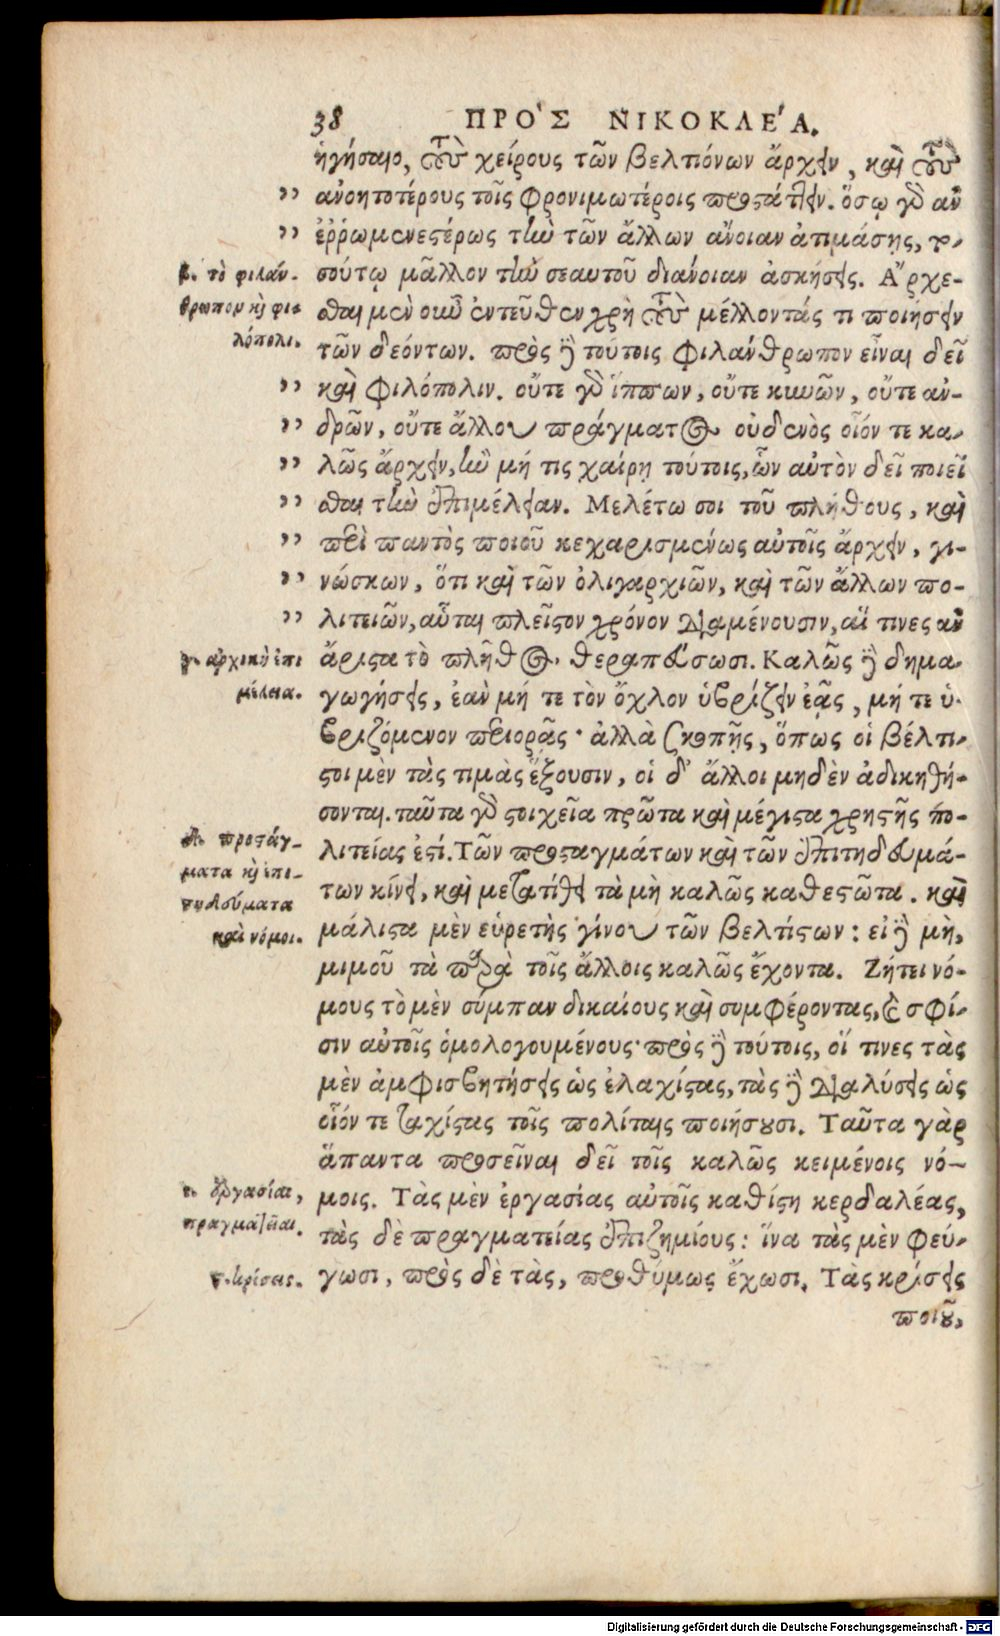 38 ΠΡΟ'Σ ΝΙΚΟΚΛΕ'Α.
ἡγήσαιο, τοὺς χείρους τῶν βελτιόνων ἄρχειν, καὶ τοὺς
” ἀνοητοτέρους τοῖς φρονιμωτέροις προστάττειν. ὅσῳ γὰρ ἂν
” ἐῤῥωμενεστέρως τὴν τῶν ἄλλων ἄνοιαν ἀτιμάσῃς, το-
σούτῳ μᾶλλον τὴν σεαυτοῦ διάνοιαν ἀσκήσεις. Ἄρχε-
σθαι μὲν οὖν ἐντεῦθεν χρὴ τοὺς μέλλοντάς τι ποιήσειν
τῶν δεόντων. πρὸς δὲ τούτοις φιλάνθρωπον εἶναι δεῖ
” καὶ φιλόπολιν. οὔτε γὰρ ἵππων, οὔτε κυνῶν, οὔτε ἀν-
” δρῶν, οὔτε ἄλλου πράγματος οὐδενὸς οἷόν τε κα-
” λῶς ἄρχειν, ἢν μή τις χαίρῃ τούτοις, ὧν αὐτὸν δεῖ ποιεῖ
” σθαι τὴν ἐπιμέλειαν. Μελέτω σοι τοῦ πλήθους, καὶ
” περὶ παντὸς ποιοῦ κεχαρισμένως αὐτοῖς ἄρχειν, γι-
” νώσκων, ὅτι καὶ τῶν ὀλιγαρχιῶν, καὶ τῶν ἄλλων πο-
” λιτειῶν, αὗται πλεῖστον χρόνον διαμένουσιν, αἵ τινες ἂν
ἄριστα τὸ πλῆθος θεραπεύσωσι. Καλῶς δὲ δημα-
γωγήσεις, ἐὰν μή τε τὸν ὄχλον ὑβρίζειν ἐᾷς, μή τε ὑ-
βριζόμενον περιορᾷς· ἀλλὰ σκοπῇς, ὅπως οἱ βέλτι-
στοι μὲν τὰς τιμὰς ἕξουσιν, οἱ δ' ἄλλοι μηδὲν ἀδικηθή-
σονται. ταῦτα γὰρ στοιχεῖα πρῶτα καὶ μέγιστα χρηστῆς πο-
λιτείας ἐστί. Τῶν προσταγμάτων καὶ τῶν ἐπιτηδευμά-
των κίνει, καὶ μετατίθει τὰ μὴ καλῶς καθεστῶτα. καὶ
μάλιστα μὲν εὑρετὴς γίνου τῶν βελτίστων: εἰ δὲ μὴ,
μιμοῦ τὰ παρὰ τοῖς ἄλλοις καλῶς ἔχοντα. Ζήτει νό-
μους τὸ μὲν σύμπαν δικαίους καὶ συμφέροντας, καὶ σφί-
σιν αὐτοῖς ὁμολογουμένους· πρὸς δὲ τούτοις, οἵ τινες τὰς
μὲν ἀμφισβητήσεις ὡς ἐλαχίστας, τὰς δὲ διαλύσεις ὡς
οἷόν τε ταχίστας τοῖς πολίταις ποιήσουσι. Ταῦτα γὰρ
ἅπαντα προσεῖναι δεῖ τοῖς καλῶς κειμένοις νό-
μοις. Τὰς μὲν ἐργασίας αὐτοῖς καθίστη κερδαλέας,
τὰς δὲ πραγματείας ἐπιζημίους: ἵνα τὰς μὲν φεύ-
γωσι, πρὸς δὲ τὰς, προθύμως ἔχωσι. Τὰς κρίσεις
ποιοῦ,
β. τὸ φιλάν-
θρωπον καὶ φι-
λόπολι.
γ. ἀρχικὴ ἐπι
μέλεια.
δ. προστάγ-
ματα καὶ ἐπι-
τηδεύματα
καὶ νόμοι.
ε. ἐργασίαι,
πραγματεῖαι.
ϛ. κρίσεις.
Digitalisierung gefördert durch die Deutsche Forschungsgemeinschaft - DFG